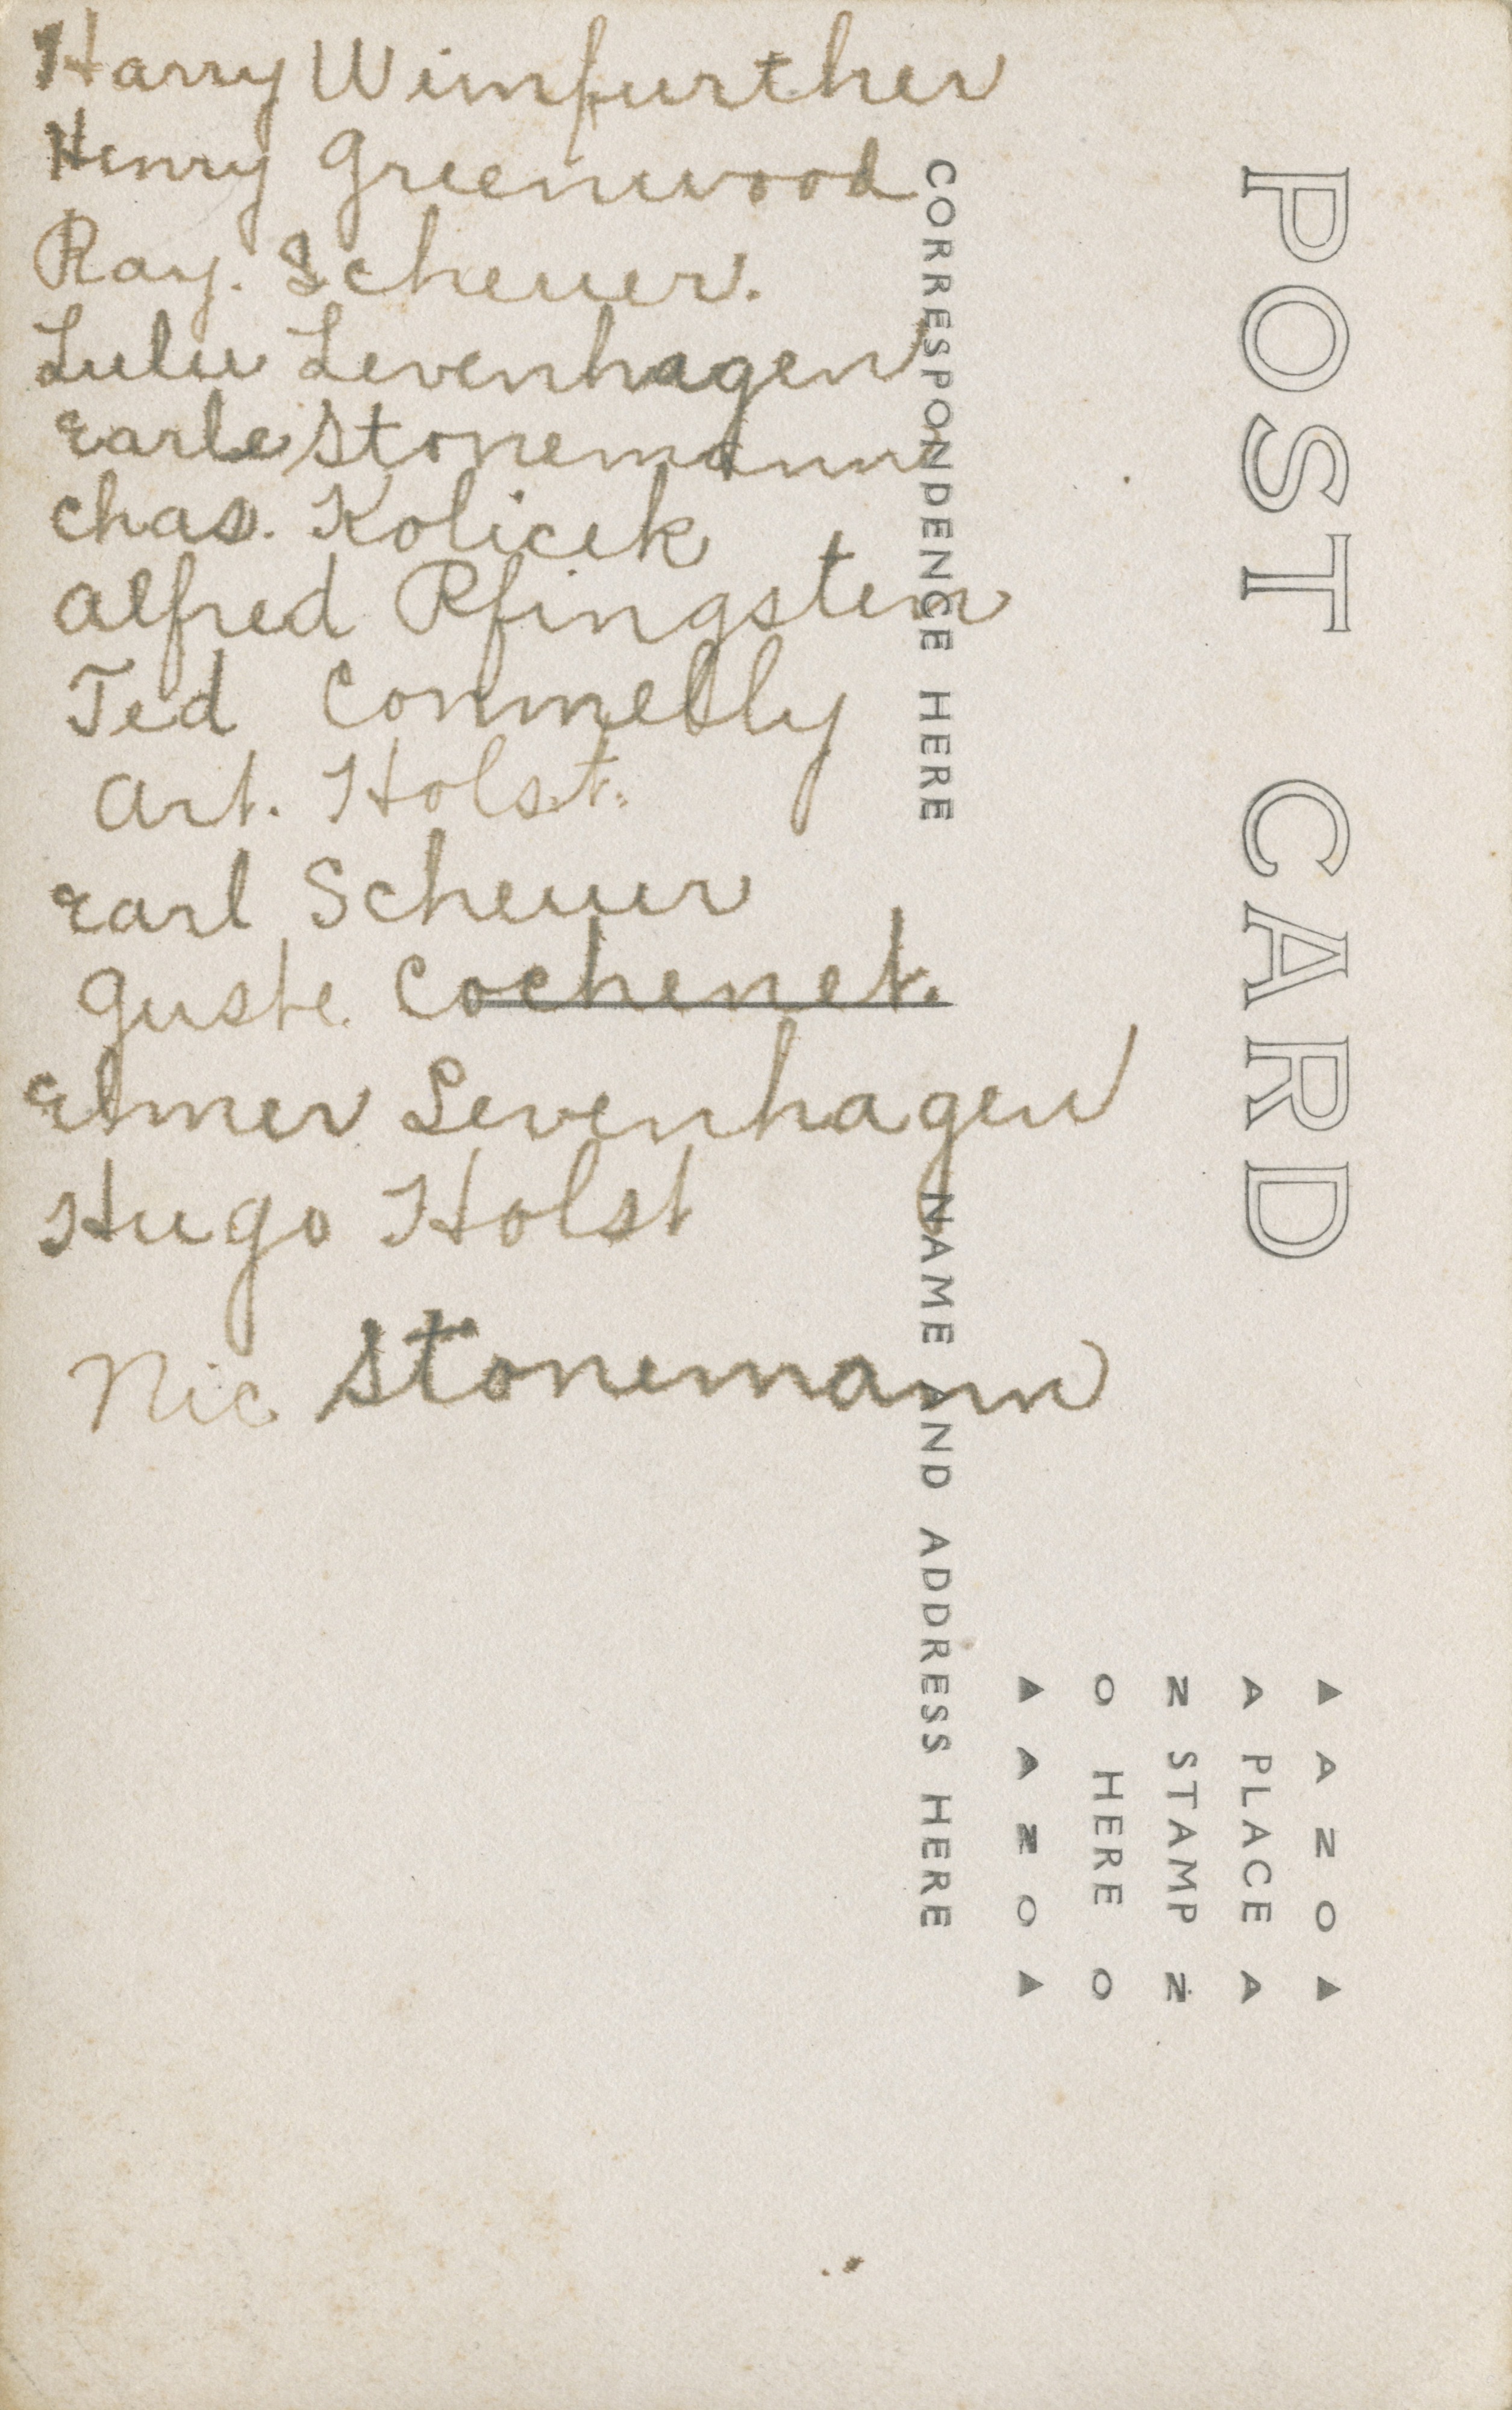 Harry Wimfurther
Henry Greenwood
Ray. Scheuer.
Lulu Levenhagen
Earle Stonemann
Chas. Kolicek
Alfred Pfingsten
Ted Connelly
Art. Holst.
Earl Scheuer
Guste. Cochenet.
Elmer Levenhagen
Hugo Holst
Nic Stonemann
POST CARD
CORRESPONDENCE HERE
NAME AND ADDRESS HERE
▲ A Z O ▲
A PLACE A
Z STAMP Z
O HERE O
▲ A Z O ▲